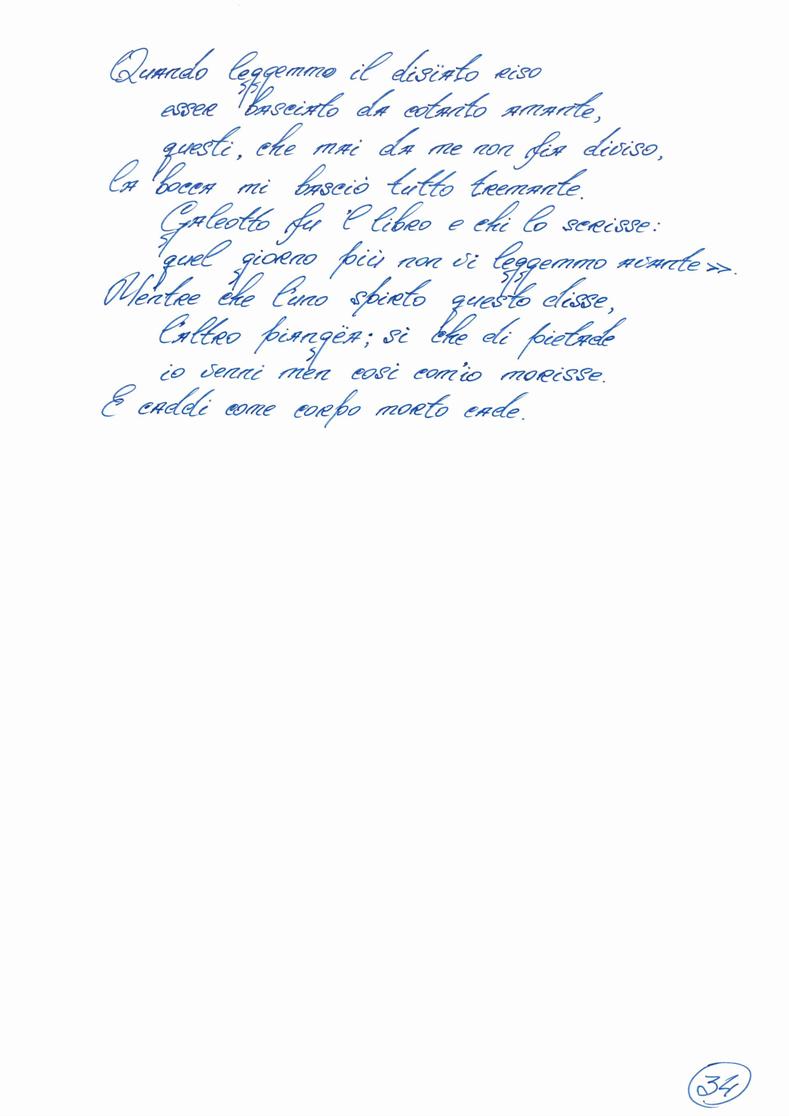 Quando leggemmo il disïato riso
esser basciato da cotanto amante,
questi, che mai da me non fia diviso,
la bocca mi basciò tutto tremante.
Galeotto fu 'l libro e chi lo scrisse:
quel giorno più non vi leggemmo avante».
Mentre che l'uno spirto questo disse,
l'altro piangëa; sì che di pietade
io venni men così com'io morisse.
E caddi come corpo morto cade.
34